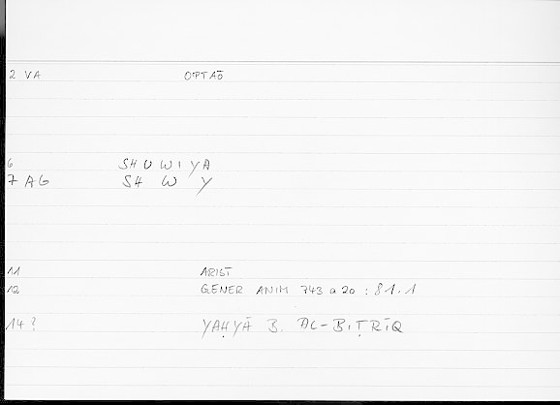 2 VA OPTAŌ
6 SHUWIYA
7 AG SH W Y
11 ARIST
12 GENER ANIM 743 a 20 : 81.1
14? YAḤYĀ B. AL-BIṬRĪQ